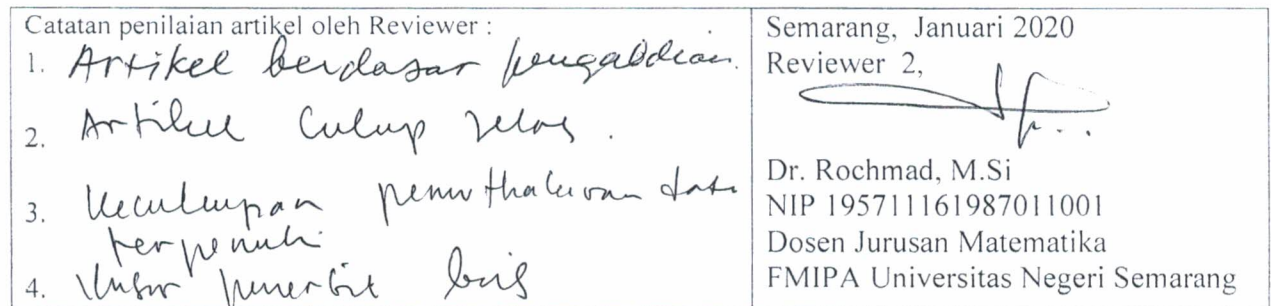 Catatan penilaian artikel oleh Reviewer :
1. Artikel berdasar pengabdian.
2. Artikel Cukup jelas.
3. Kecukupan pemuthakiran data
terpenuhi
4. Unsur penerbit baik
Semarang, Januari 2020
Reviewer 2,
Dr. Rochmad, M.Si
NIP 195711161987011001
Dosen Jurusan Matematika
FMIPA Universitas Negeri Semarang